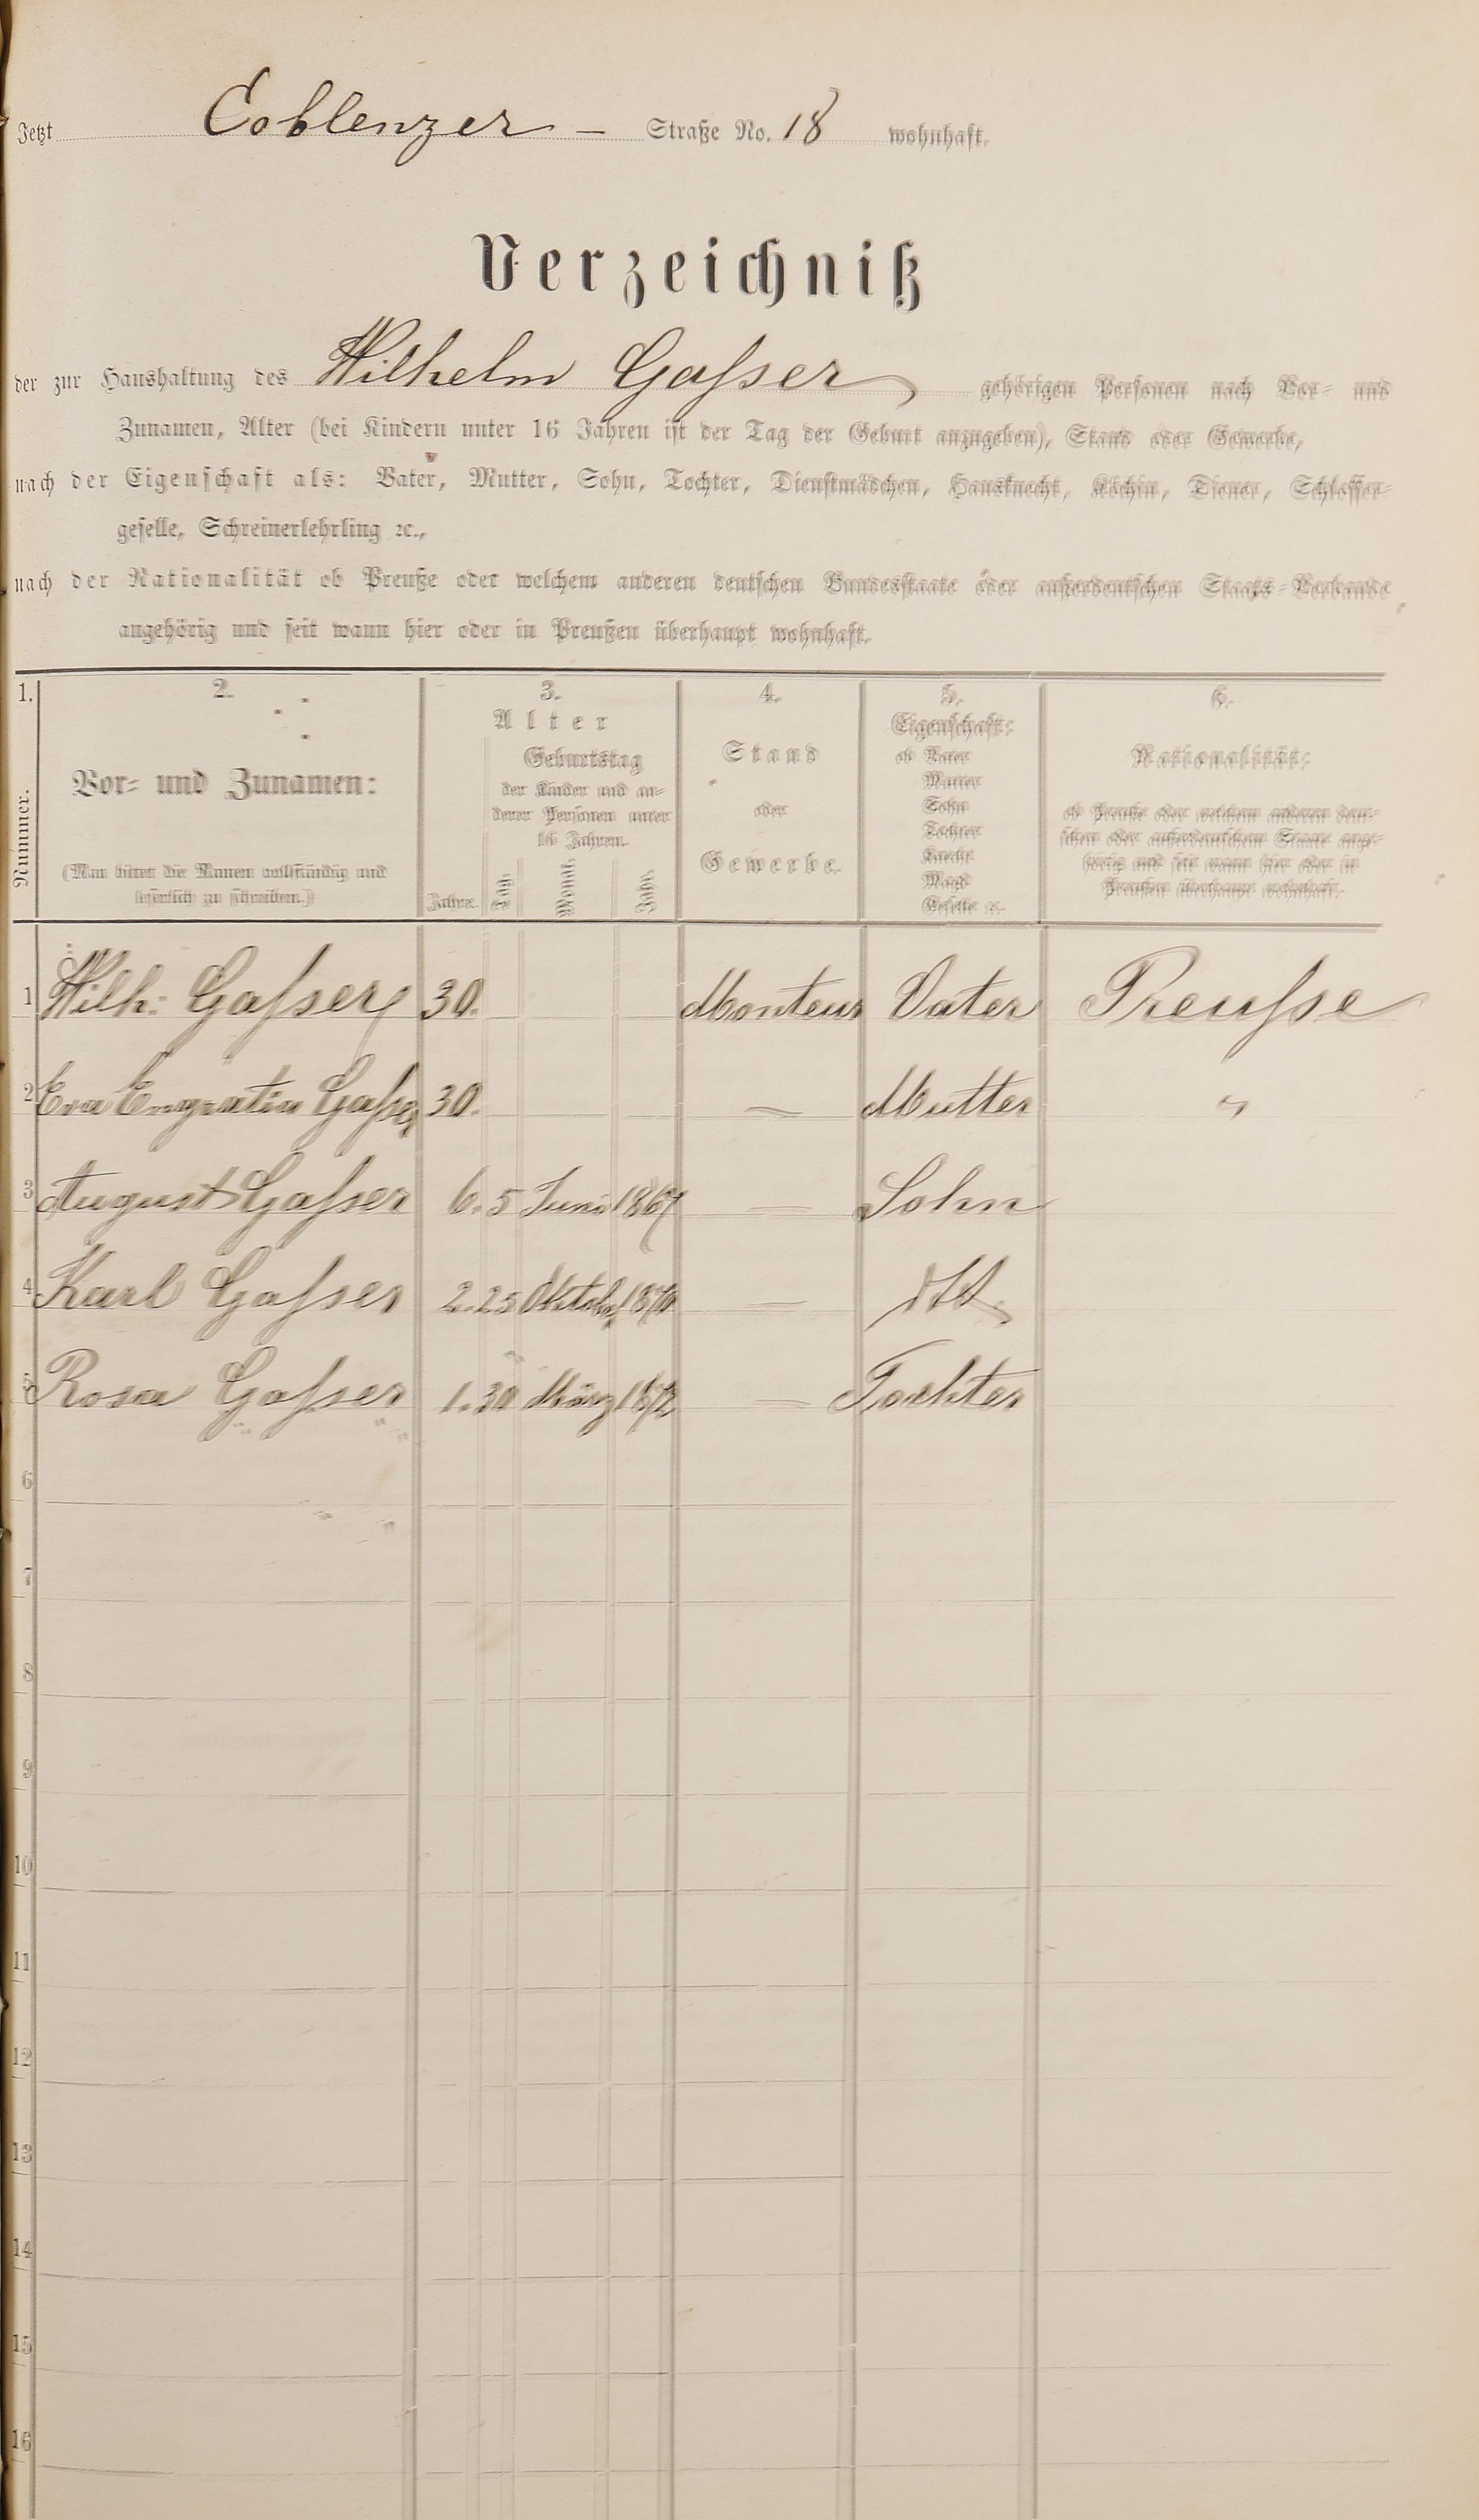 Jetzt Coblenzer – Straße No. 18 wohnhaft.
Verzeichniß
der zur Haushaltung des Wilhelm Gaſser gehörigen Personen nach Vor- und
Zunamen, Alter (bei Kindern unter 16 Jahren ist der Tag der Geburt anzugeben), Stand oder Gewerbe,
nach der Eigenschaft als: Vater, Mutter, Sohn, Tochter, Dienstmädchen, Hausknecht, Köchin, Diener, Schlosser-
geselle, Schreinerlehrling ꝛc.,
nach der Nationalität ob Preuße oder welchem anderen deutschen Bundesstaate oder außerdeutschen Staats-Verbande
angehörig und seit wann hier oder in Preußen überhaupt wohnhaft.
1. 2. 3. 4. 5. 6.
Nummer.
Vor- und Zunamen:
(Man bittet die Namen vollständig und
leserlich zu schreiben.)
Alter
Jahre.
Geburtstag
der Kinder und an-
derer Personen unter
16 Jahren.
Tag. Monat. Jahr.
Stand
oder
Gewerbe.
Eigenschaft:
ob Vater
Mutter
Sohn
Tochter
Knecht
Magd
Geselle ꝛc.
Nationalität:
ob Preuße oder welchem anderen deut-
schen oder außerdeutschem Staate ange-
hörig und seit wann hier oder in
Preußen überhaupt wohnhaft.
1 Wilh: Gaſser 30. Monteur Vater Preuſse
2 Eva Gaſser 30. — Mutter "
3 August Gaſser 6. 5 Juni 1867 — Sohn
4 Karl Gaſser 2. 25 Oktober — dtt.
5 Rosa Gaſser 1. 30 März 1872 — Tochter
6
7
8
9
10
11
12
13
14
15
16